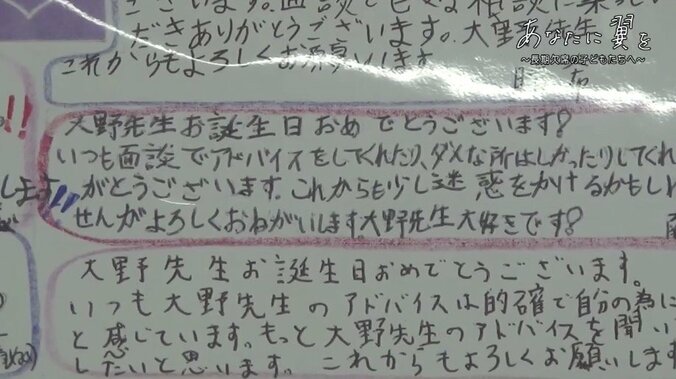 ざいます。面談で色々な相談に乗
だきありがとうございます。大野先生
これからもよろしくお願いします
あなたに翼を
～長期欠席の子どもたちへ～
!!
大野先生お誕生日おめでとうございます?
いつも面談でアドバイスをしてくれたり、ダメな所はしかったりしてくれ
します!!
がとうございます。これからも少し迷惑をかけるかもしれ
せんがよろしくおねがいします大野先生大好きです?
大野先生お誕生日おめでとうございます。
いつも大野先生のアドバイスは的確で自分の為に
と感じています。もっと大野先生のアドバイスを聞い
したいと思います。これからもよろしくお願いします